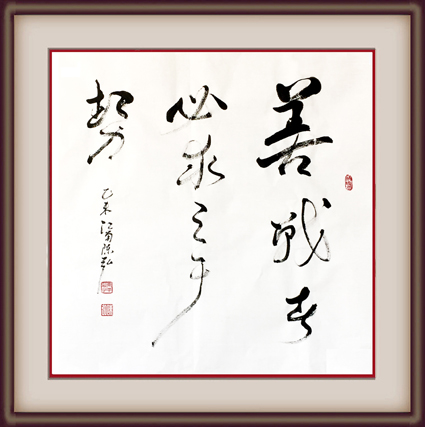 善战者
必求之于
势
乙未